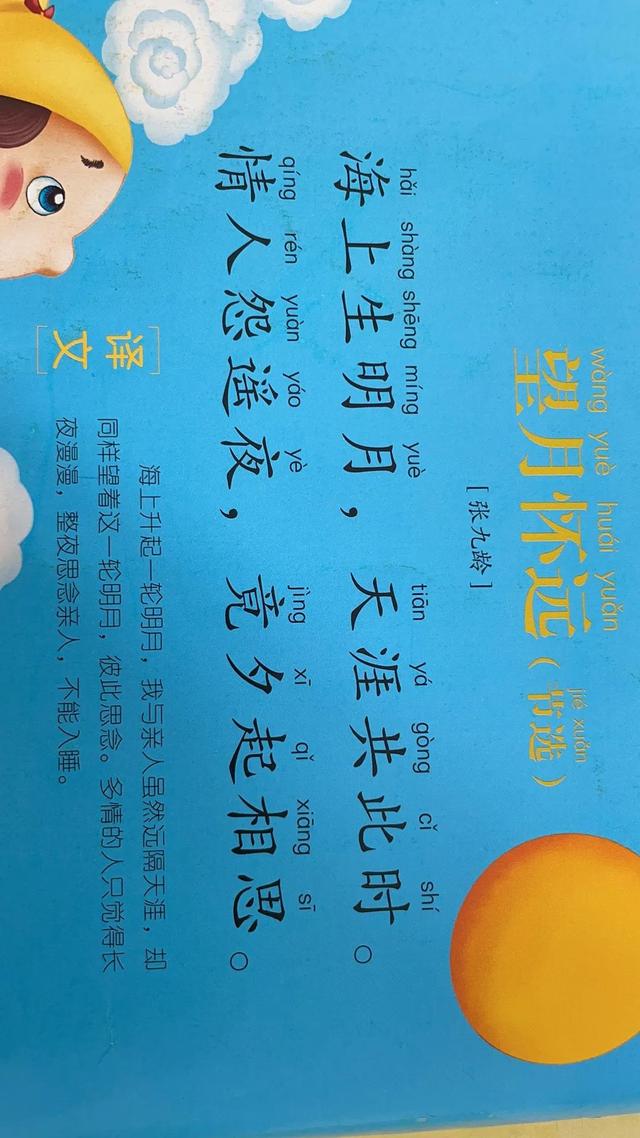 wàng yuè huái yuǎn jié xuǎn
望月怀远（节选）
[张九龄]
hǎi shàng shēng míng yuè tiān yá gòng cǐ shí
海上生明月，天涯共此时。
qíng rén yuàn yáo yè jìng xī qǐ xiāng sī
情人怨遥夜，竟夕起相思。
[译文]
海上升起一轮明月，我与亲人虽然远隔天涯，却
同样望着这一轮明月，彼此思念。多情的人只觉得长
夜漫漫，整夜思念亲人，不能入睡。